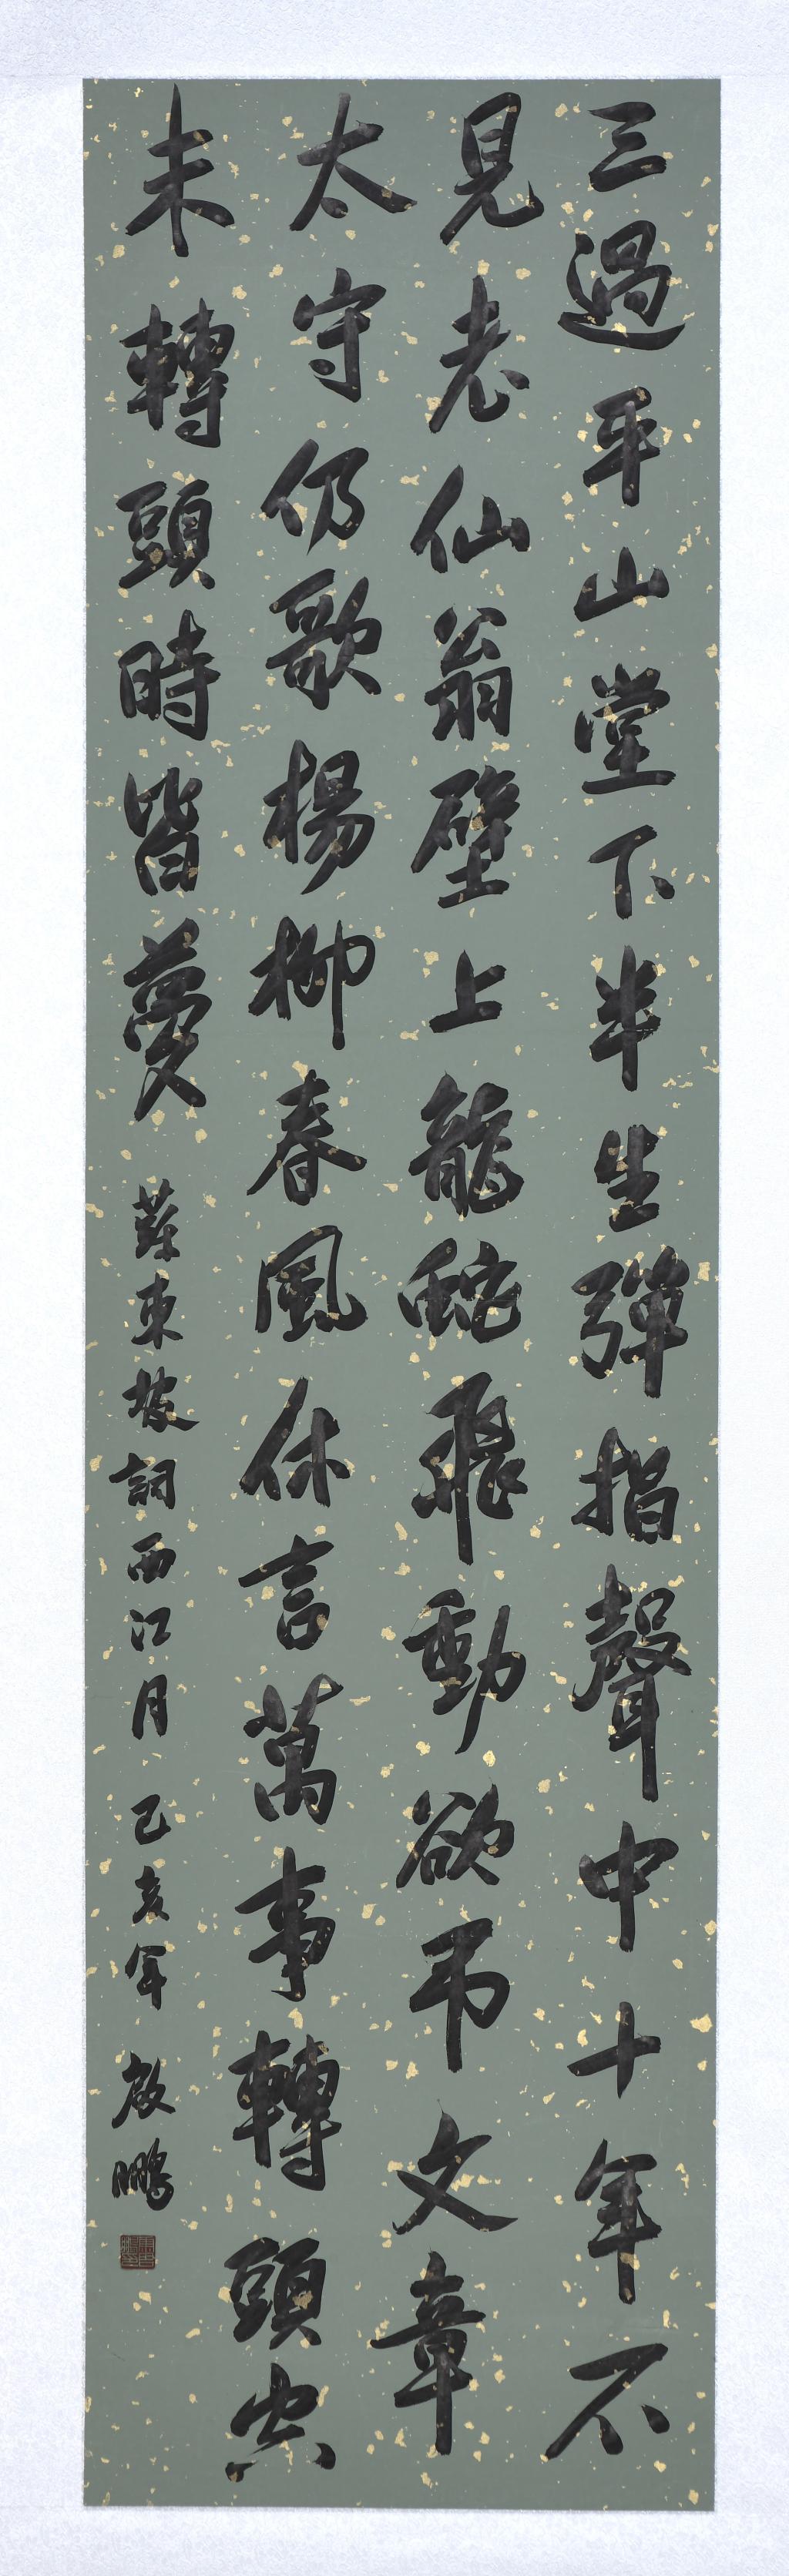 三過平山堂下半生彈指聲中十年不
見老仙翁壁上龍蛇飛動欲吊文章
太守仍歌楊柳春風休言萬事轉頭空
未轉頭時皆夢 蘇東坡詞西江月 己亥年 啟鵬